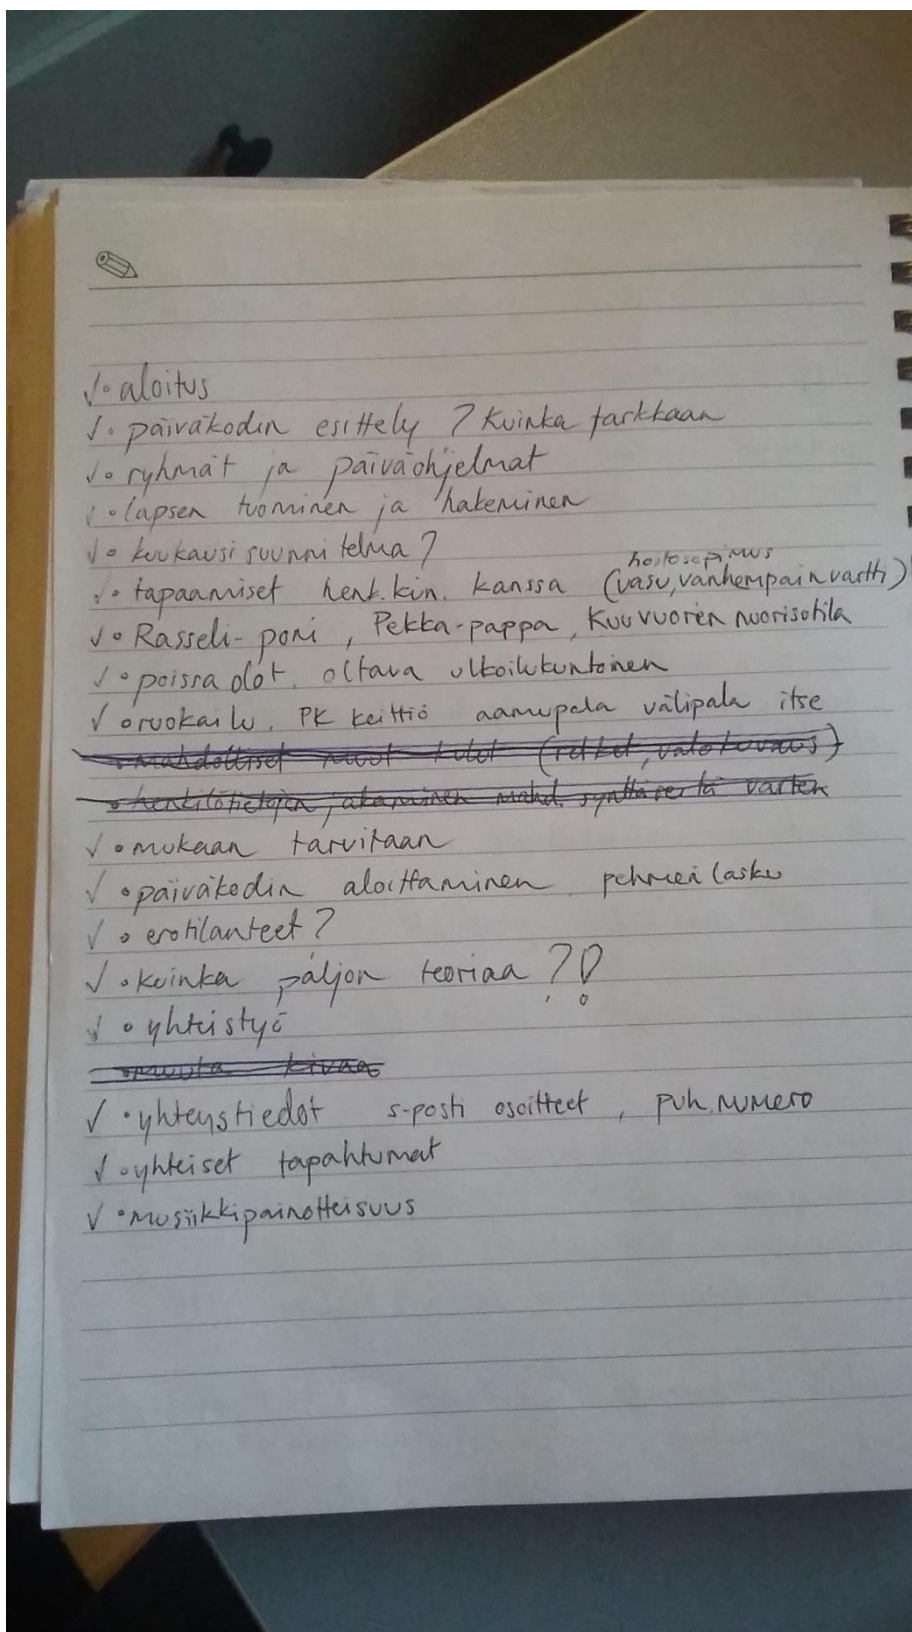 ✓• aloitus
✓• päiväkodin esittely ? Kuinka tarkkaan
✓• ryhmät ja päiväohjelmat
✓• lapsen tuominen ja hakeminen
✓• kuukausisuunnitelma?
hoitosopimus
✓• tapaamiset henk.kin. kanssa (vasu, vanhempainvartti)
✓• Rasseli-poni, Pekka-pappa, Kuuvuoren nuorisotila
✓• poissaolot. oltava ulkoilukuntoinen
✓• ruokailu. PK keittiö aamupala välipala itse
• mahdolliset muut kulut (retket, valokuvaus)
• henkilötietojen jakaminen mahd. synttäreitä varten
✓• mukaan tarvitaan
✓• päiväkodin aloittaminen, pehmeä lasku
✓• erotilanteet?
✓• kuinka paljon teoriaa ?!
✓• yhteistyö
• muuta kivaa
✓• yhteystiedot s-posti osoitteet, puh.numero
✓• yhteiset tapahtumat
✓• musiikkipainotteisuus